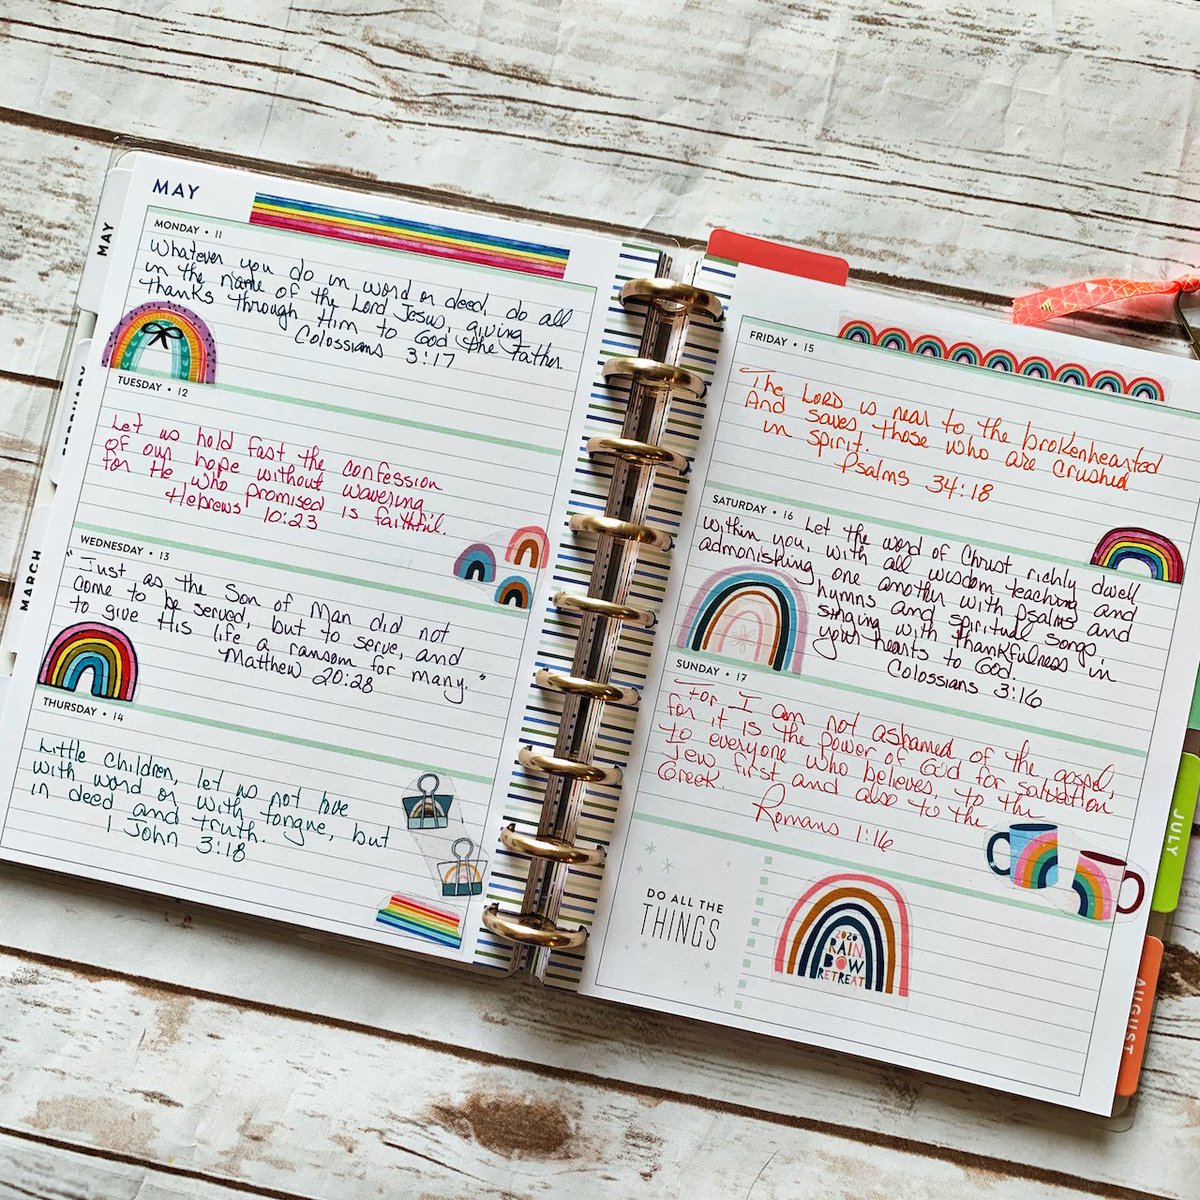 MAY
MONDAY • 11
Whatever you do in word or deed, do all
in the name of the Lord Jesus, giving
thanks through Him to God the Father.
Colossians 3:17
TUESDAY • 12
Let us hold fast the confession
of our hope without wavering,
for He who promised is faithful.
Hebrews 10:23
WEDNESDAY • 13
"Just as the Son of Man did not
come to be served, but to serve, and
to give His life a ransom for many."
Matthew 20:28
THURSDAY • 14
Little children, let us not love
with word or with tongue, but
in deed and truth.
1 John 3:18
MAY
FEBRUARY
MARCH
FRIDAY • 15
The LORD is near to the brokenhearted
And saves those who are crushed
in spirit.
Psalms 34:18
SATURDAY • 16
Let the word of Christ richly dwell
within you, with all wisdom teaching and
admonishing one another with Psalms and
hymns and spiritual songs,
singing with thankfulness in
your hearts to God.
Colossians 3:16
SUNDAY • 17
For I am not ashamed of the gospel,
for it is the power of God for salvation
to everyone who believes, to the
Jew first and also to the
Greek.
Romans 1:16
DO ALL THE
THINGS
2020
RAIN
BOW
RETREAT
JULY
AUGUST